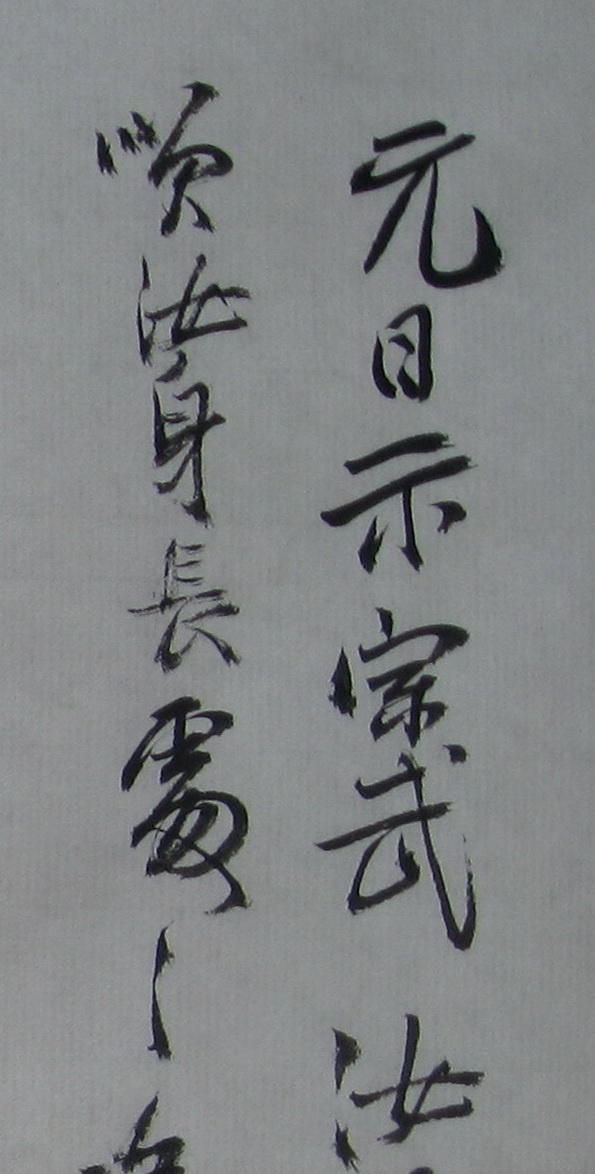 元日示宗武 汝
咲汝身長處〻